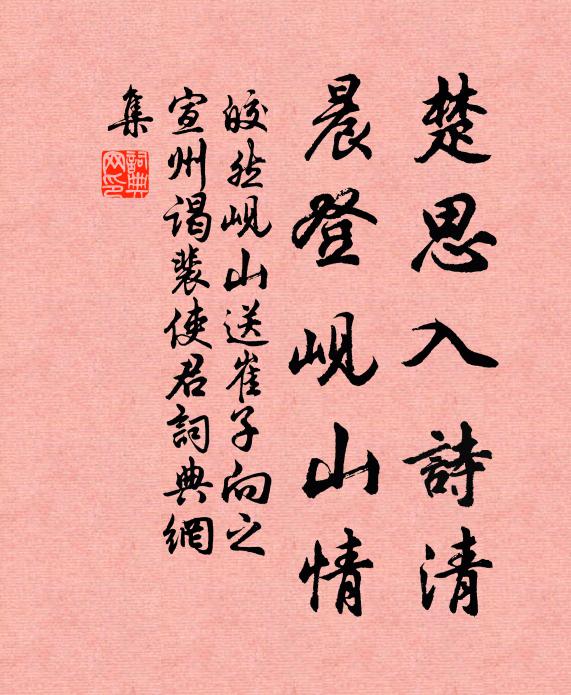 楚思入詩清
晨登峴山情
皎然峴山送崔子向之
宣州謁裴使君詞典網
集
詞典網印